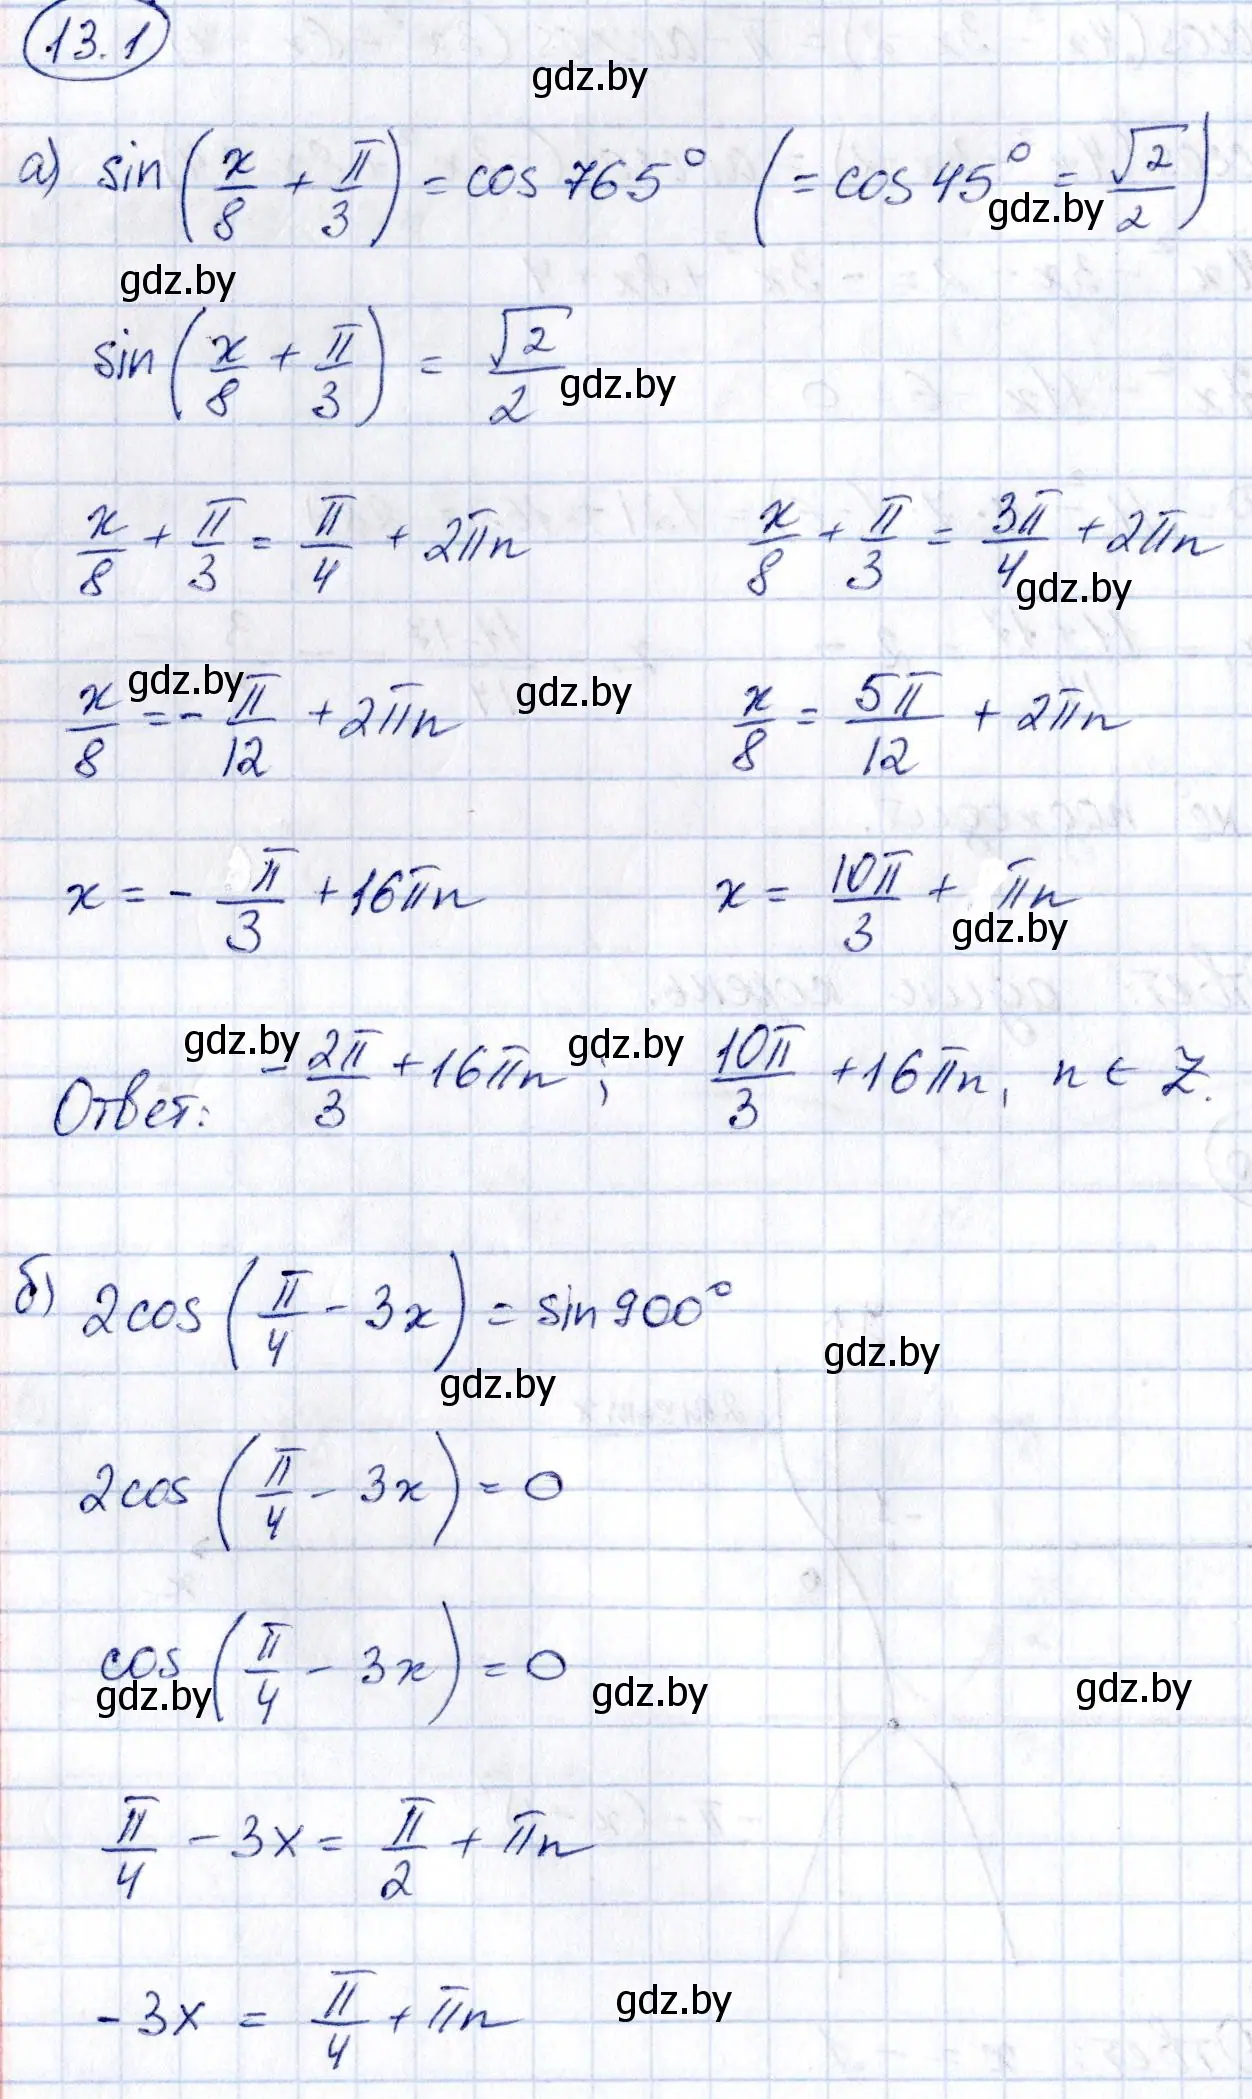 13.1
gdz.by
а) sin(x/8 + π/3) = cos 765° (= cos 45° = √2/2)
gdz.by
gdz.by
sin(x/8 + π/3) = √2/2
gdz.by
x/8 + π/3 = π/4 + 2πn x/8 + π/3 = 3π/4 + 2πn
gdz.by
gdz.by gdz.by
x/8 = - π/12 + 2πn x/8 = 5π/12 + 2πn
x = - π/3 + 16πn x = 10π/3 + πn
gdz.by
gdz.by gdz.by
Ответ: - 2π/3 + 16πn ; 10π/3 + 16πn, n ∈ Z.
б) 2cos(π/4 - 3x) = sin 900°
gdz.by
gdz.by
2cos(π/4 - 3x) = 0
cos(π/4 - 3x) = 0
gdz.by gdz.by gdz.by
π/4 - 3x = π/2 + πn
-3x = π/4 + πn
gdz.by